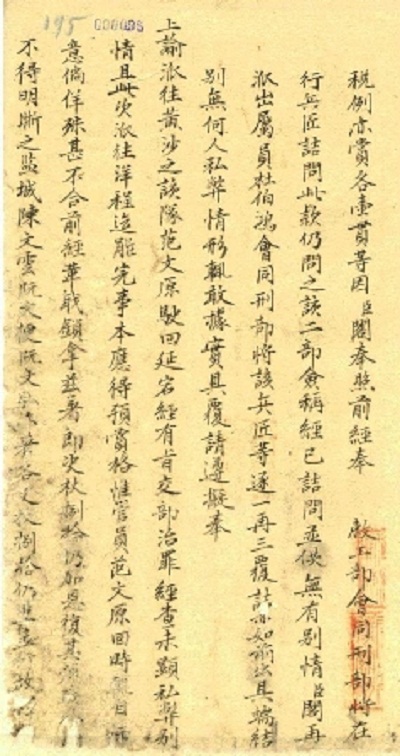 195 000006
税例亦賞各壹貫等因臣閣奉照前經奉 敕工部會同刑部將在
行兵匠詰問此款仍問之該二部僉稱經已詰問並供無有別情臣閣再
派出屬員杜伯鴻會同刑部將該兵匠等逐一再三覆詰亦如前出具端結
別無何人私弊情形輒敢據實具覆請遵擬奉
上諭派往黃沙之該隊范文原駛回延宕經有旨交部治罪經查未顯私弊別
情且此次派往洋程造船完事本應得預賞格惟管員范文原回時
意倘佯殊甚不合前經革職鎖拿茲著即決杖捌拾仍加恩復其
不得明晰之監城陳文雲阮文 阮文 各杖捌拾仍